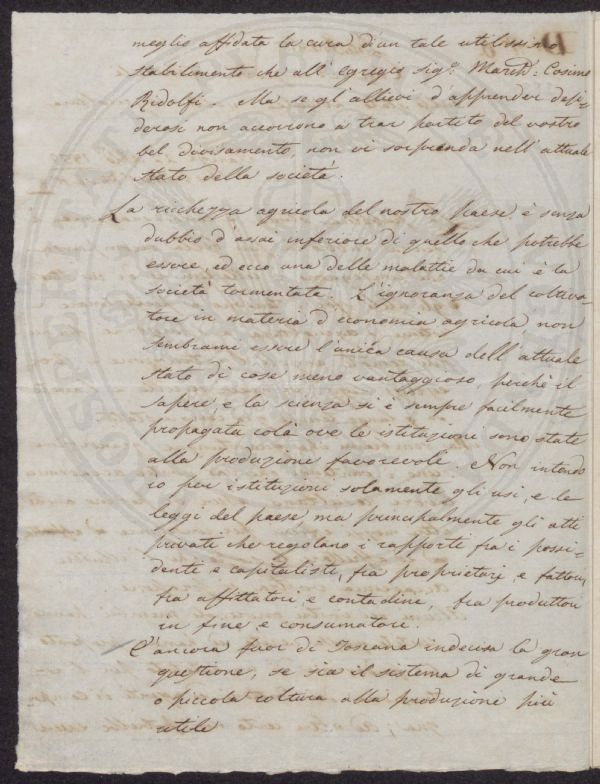 meglio affidata la cura d'un tale utilissimo
stabilimento che all' egregio sig.r March: Cosimo
Ridolfi. Ma se gl'allievi d'apprender desi-
derosi non accorrono a trar partito del vostro
bel divisamento, non vi sorprenda nell'attuale
stato della società.
La richezza agricola del nostro paese è senza
dubbio d'assai inferiore di quello che potrebbe
essere, ed ecco una delle malattie da cui è la
società tormentata. L'ignoranza del coltiva-
tore in materia d'economia agricola, non
sembrami essere l'unica causa dell'attuale
stato di cose meno vantaggioso, perchè il
sapere e la scienza si è sempre facilmente
propagata colà ove le istituzioni sono state
alla produzione favorevoli. Non intendo
io per istituzioni solamente gli usi, e le
leggi del paese, ma principalmente gli atti
privati che regolano i rapporti fra i possi-
denti e capitalisti, fra proprietarj e fattori,
fra affittatori e contadini, fra produttori
in fine e consumatori.
È ancora fuor di Toscana indecisa la gran
questione, se sia il sistema di grande
o piccola coltura alla produzione più
utile
PROSPERITÀ